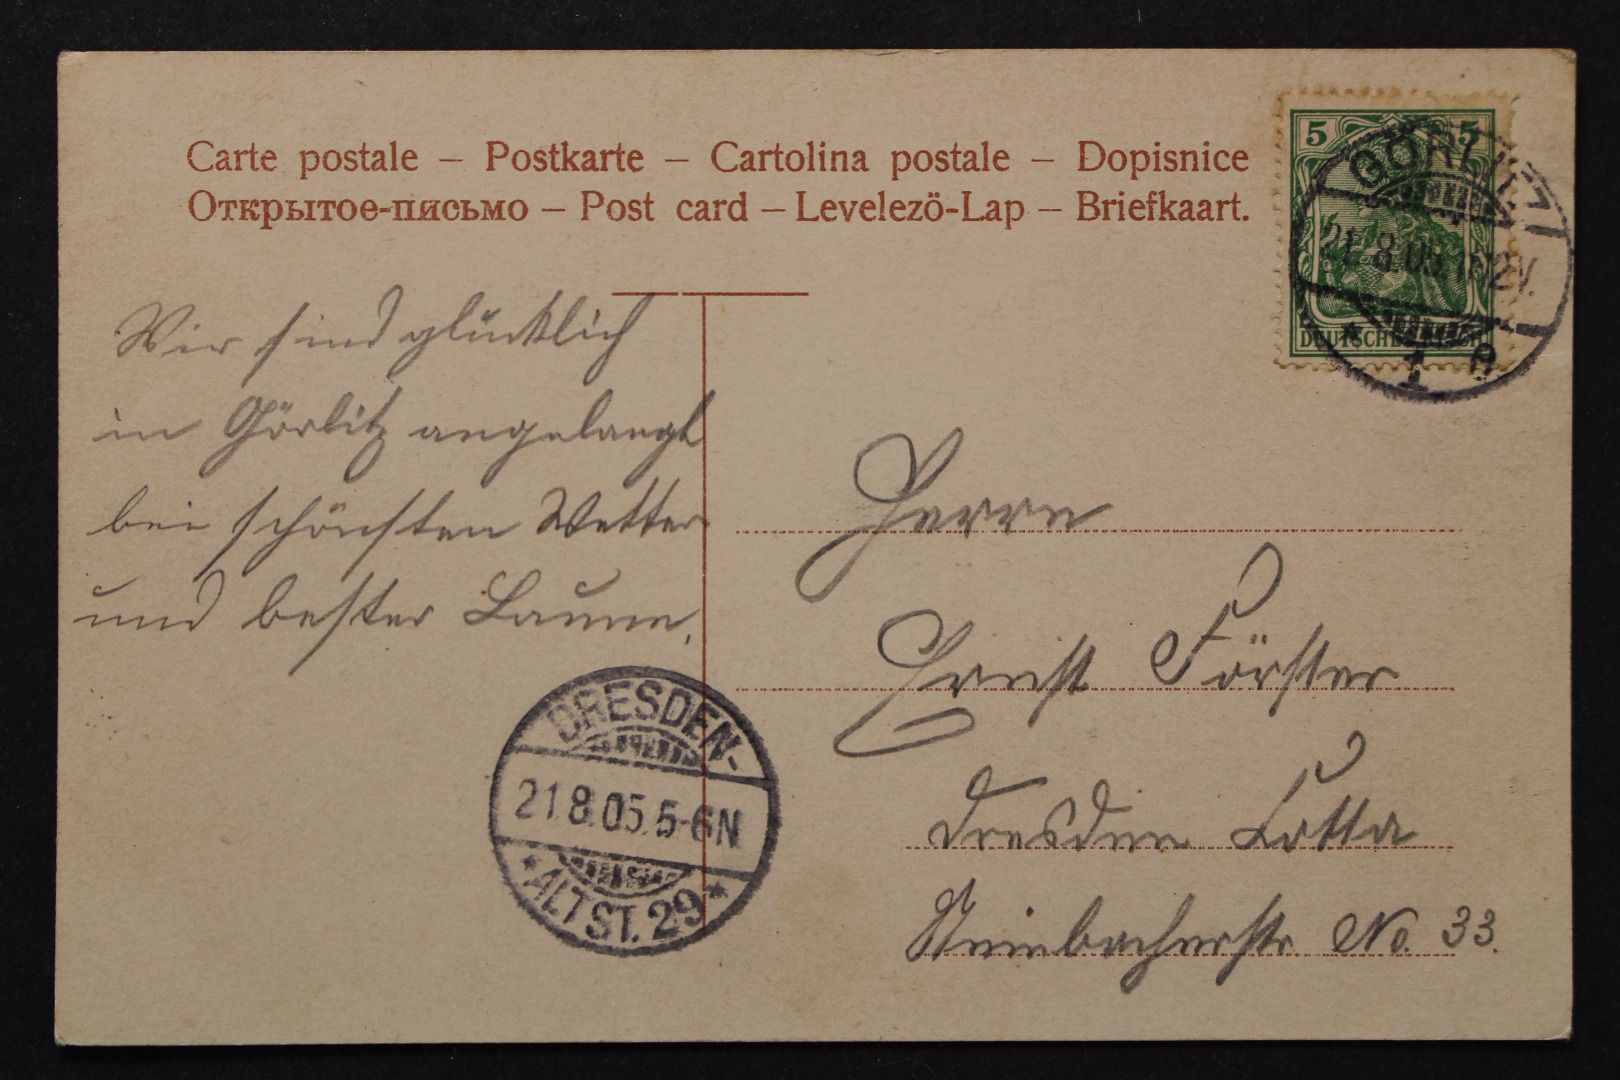 Carte postale – Postkarte – Cartolina postale – Dopisnice
Открытое-письмо – Post card – Levelezö-Lap – Briefkaart.
5 5
GÖRLITZ
21.8.05.
DEUTSCHES REICH
1
Wir sind glücklich
in Görlitz angelangt
bei schönsten Wetter
und bester Laune.
Herrn
Ernst Förster
Dresden Cotta
Steinbacherstr No. 33.
DRESDEN-
21.8.05.5-6N
* ALTST. 29 *